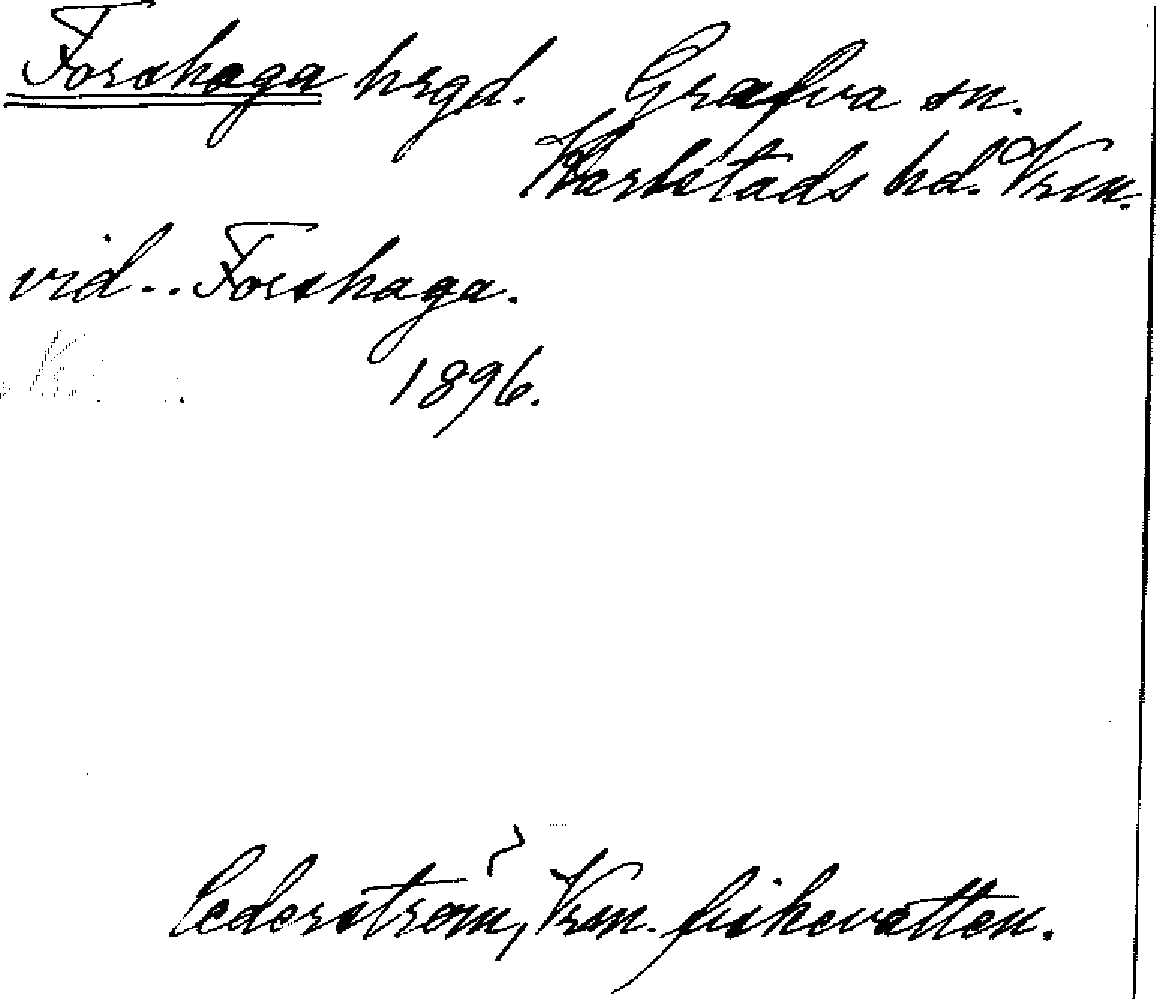 Forshaga hrgd. Grafva sn.
Karlstads hd. Vrm.
vid.. Forshaga.
1896.
Cederström, Vrm. fiskevatten.